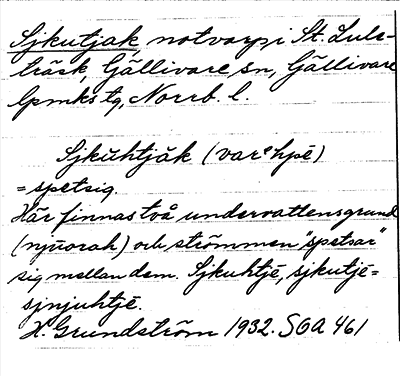 Sjkutjak, notvarp i St. Lule-
träsk, Gällivare sn, Gällivare
lpmks tg, Norrb. l.
Sjkŭhtjăk (varᵉhpē)
= spetsig.
Här finnas två undervattensgrund
(njūorak) och strömmen "spetsar"
sig mellan dem. Sjkuhtjē, sjkutjē=
sjnjuhtjē.
H. Grundström 1932. SOA 461